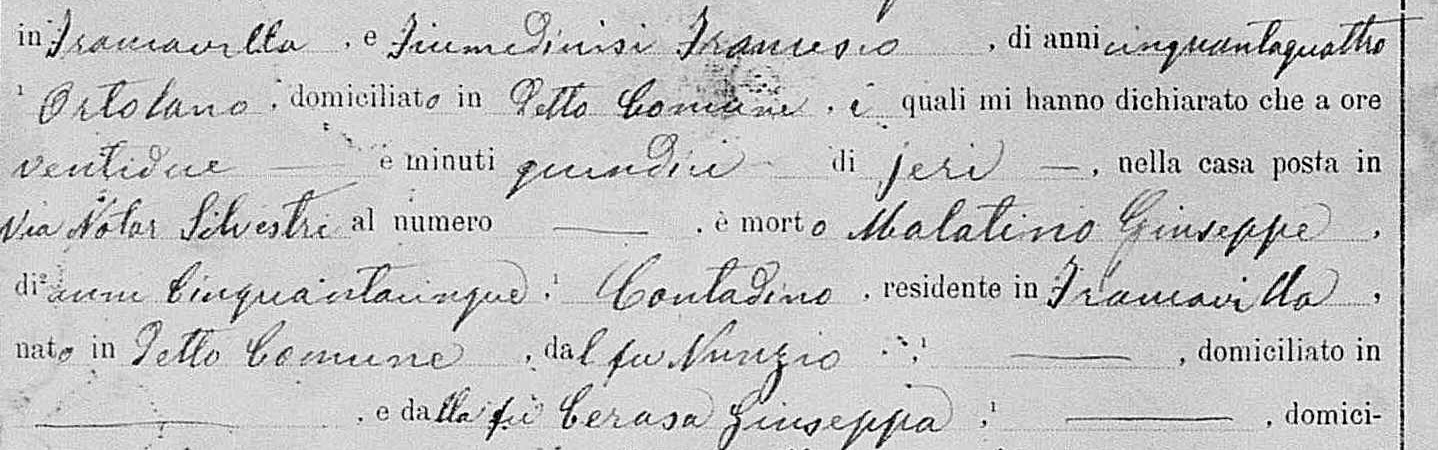 in Francavilla, e Fiumedinisi Francesco, di anni cinquantaquattro
¹ Ortolano, domiciliato in Detto Comune, i quali mi hanno dichiarato che a ore
ventidue — e minuti quindici di jeri —, nella casa posta in
Via Notar Silvestri al numero —, è morto Malatino Giuseppe,
di² anni Cinquantacinque,¹ Contadino, residente in Francavilla,
nato in Detto Comune, dal fu Nunzio,¹ —, domiciliato in
—, e dalla fu Cerasa Giuseppa,¹ —, domici-